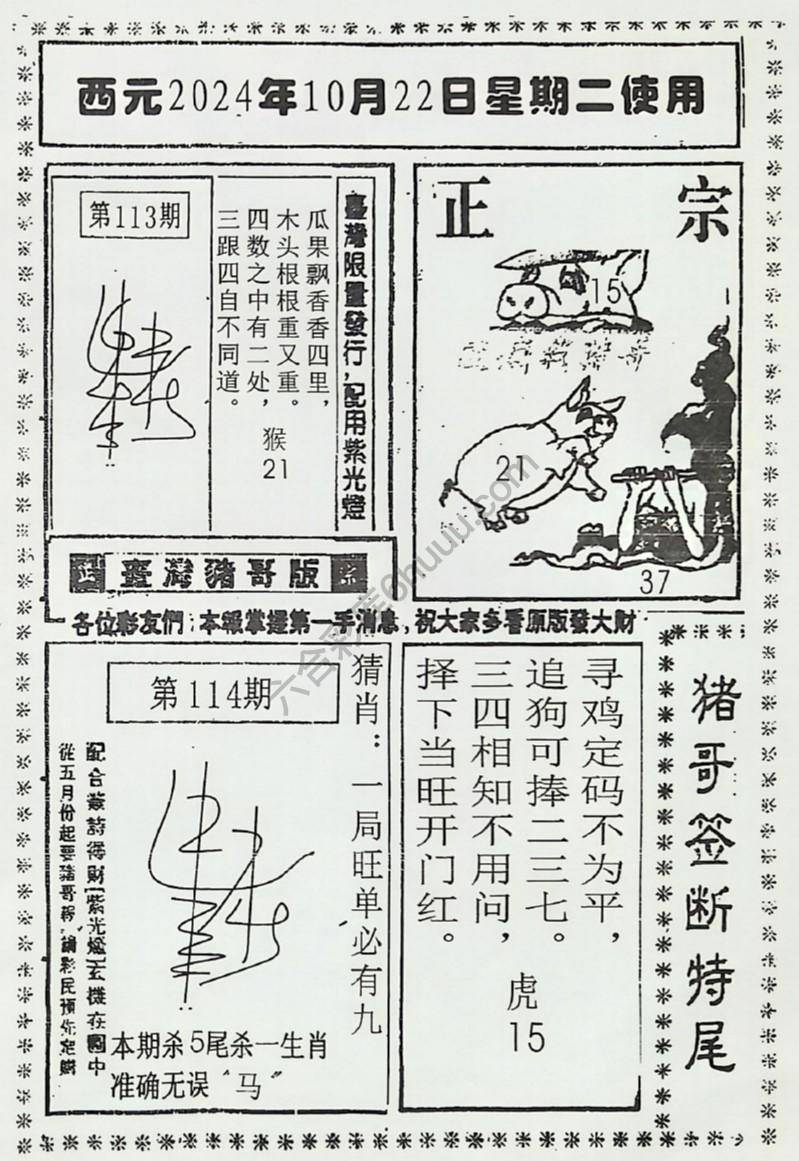 西元2024年10月22日星期二使用
第113期
臺灣限量發行，配用紫光燈
瓜果飘香香四里，
木头根根重又重。
四数之中有二处，
三跟四自不同道。
猴
21
正宗
15
21
37
正 臺灣豬哥版 宗
各位彩友們：本報掌握第一手消息，祝大家多看原版發大財
第114期
猜肖：一局旺单必有九
配合叢詩得財（紫光燈）玄機在圖中
從五月份起要豬哥報，請彩民預先定購
本期杀5尾杀一生肖
准确无误“马”
寻鸡定码不为平，
追狗可捧二三七。
三四相知不用问，
择下当旺开门红。
虎
15
猪哥签断特尾
六合彩库6huuu.com